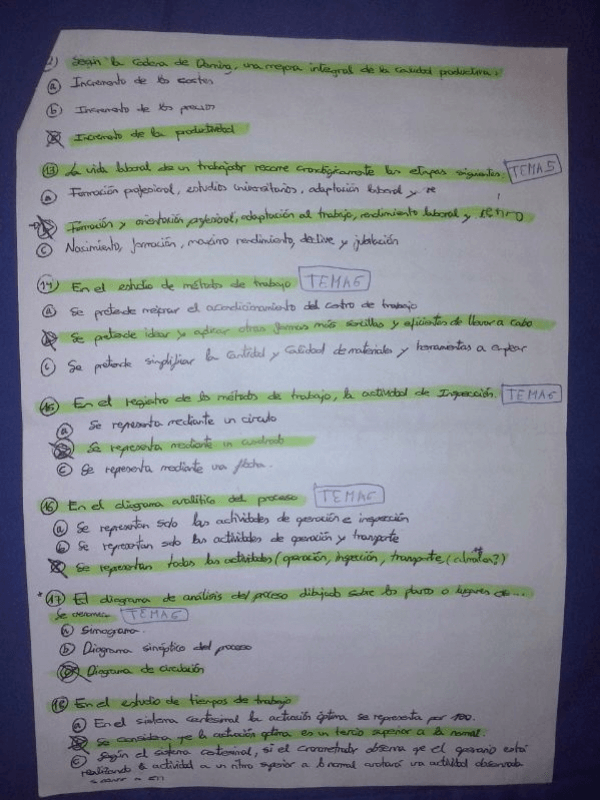 2) Según la Cadena de Deming, una mejora integral de la calidad productiva:
a Incremento de los costes
b Incremento de los precios
c Incremento de la productividad
13) La vida laboral de un trabajador recorre cronológicamente las etapas siguientes. TEMA 5
a Formación profesional, estudios universitarios, adaptación laboral y re
b Formación y orientación profesional, adaptación al trabajo, rendimiento laboral y retiro
c Nacimiento, formación, máximo rendimiento, declive y jubilación
14) En el estudio de métodos de trabajo TEMA 6
a Se pretende mejorar el acondicionamiento del centro de trabajo
b Se pretende idear y aplicar otras formas más sencillas y eficientes de llevar a cabo
c Se pretende simplificar la cantidad y calidad de materiales y herramientas a emplear
15) En el registro de los métodos de trabajo, la actividad de Inspección. TEMA 6
a Se representa mediante un círculo
b Se representa mediante un cuadrado
c Se representa mediante una flecha.
16) En el diagrama analítico del proceso TEMA 6
a Se representan solo las actividades de operación e inspección
b Se representan solo las actividades de operación y transporte
c Se representan todas las actividades (operación, inspección, transporte,
* 17) El diagrama de análisis del proceso dibujado sobre los planos o lugares de...
Se denomina TEMA 6
a Simograma.
b Diagrama sinóptico del proceso
c Diagrama de circulación
18) En el estudio de tiempos de trabajo
a En el sistema centesimal la actuación óptima se representa por 100.
b Se considera que la actuación óptima es un tercio superior a la normal.
c Según el sistema centesimal, si el cronometrador observa que el operario está
realizando la actividad a un ritmo superior a lo normal anotará una actividad observada